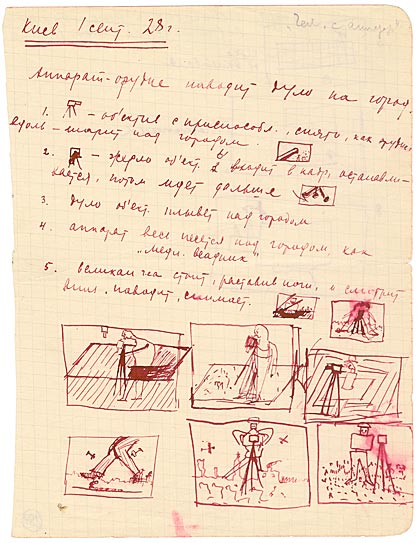 Киев 1 сент. 28 г.
"Чел. с аппар."
Аппарат-орудие наводит дуло на город
1. – объектив с приспособл., снять, как орудие
вдоль – шарит над городом.
2. – жерло об'ект. входит в кадр, останавли-
вается, потом идет дальше
3. дуло об'ект. плывет над городом
4. аппарат весь несется над городом, как
"медн. всадник"
5. великан на стоит, раставив ноги, и смотрит
вниз, наводит, снимает.